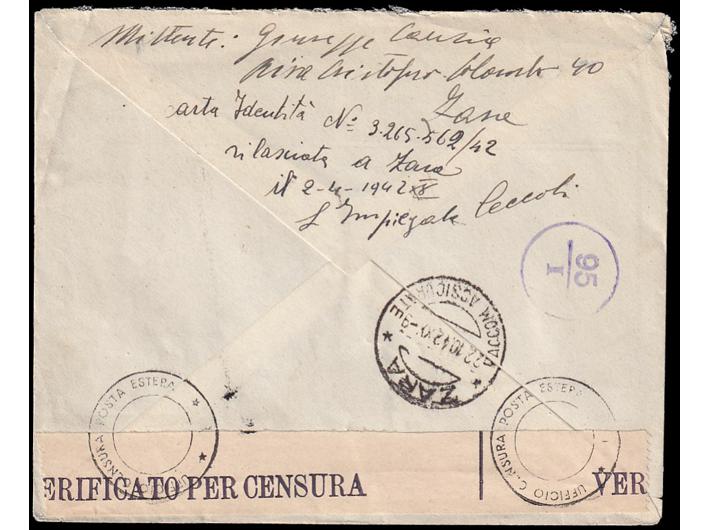 Mittente: Giuseppe
Riva Cristoforo Colombo 40
Zara
Carta Identità No 3.265.562/42
rilasciata a Zara
il 2-4-1942 XX
L'Impiegata Ceccoli
95
I
RACCOM ASSICURATE
22.10.42.XX
ZARA
UFFICIO CENSURA POSTA ESTERA
UFFICIO CENSURA POSTA ESTERA
ERIFICATO PER CENSURA
VER